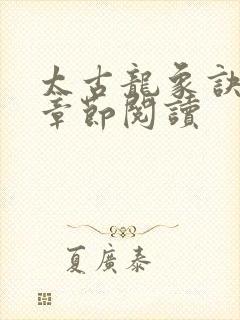 太古龍象訣
章節閱讀
夏廣泰